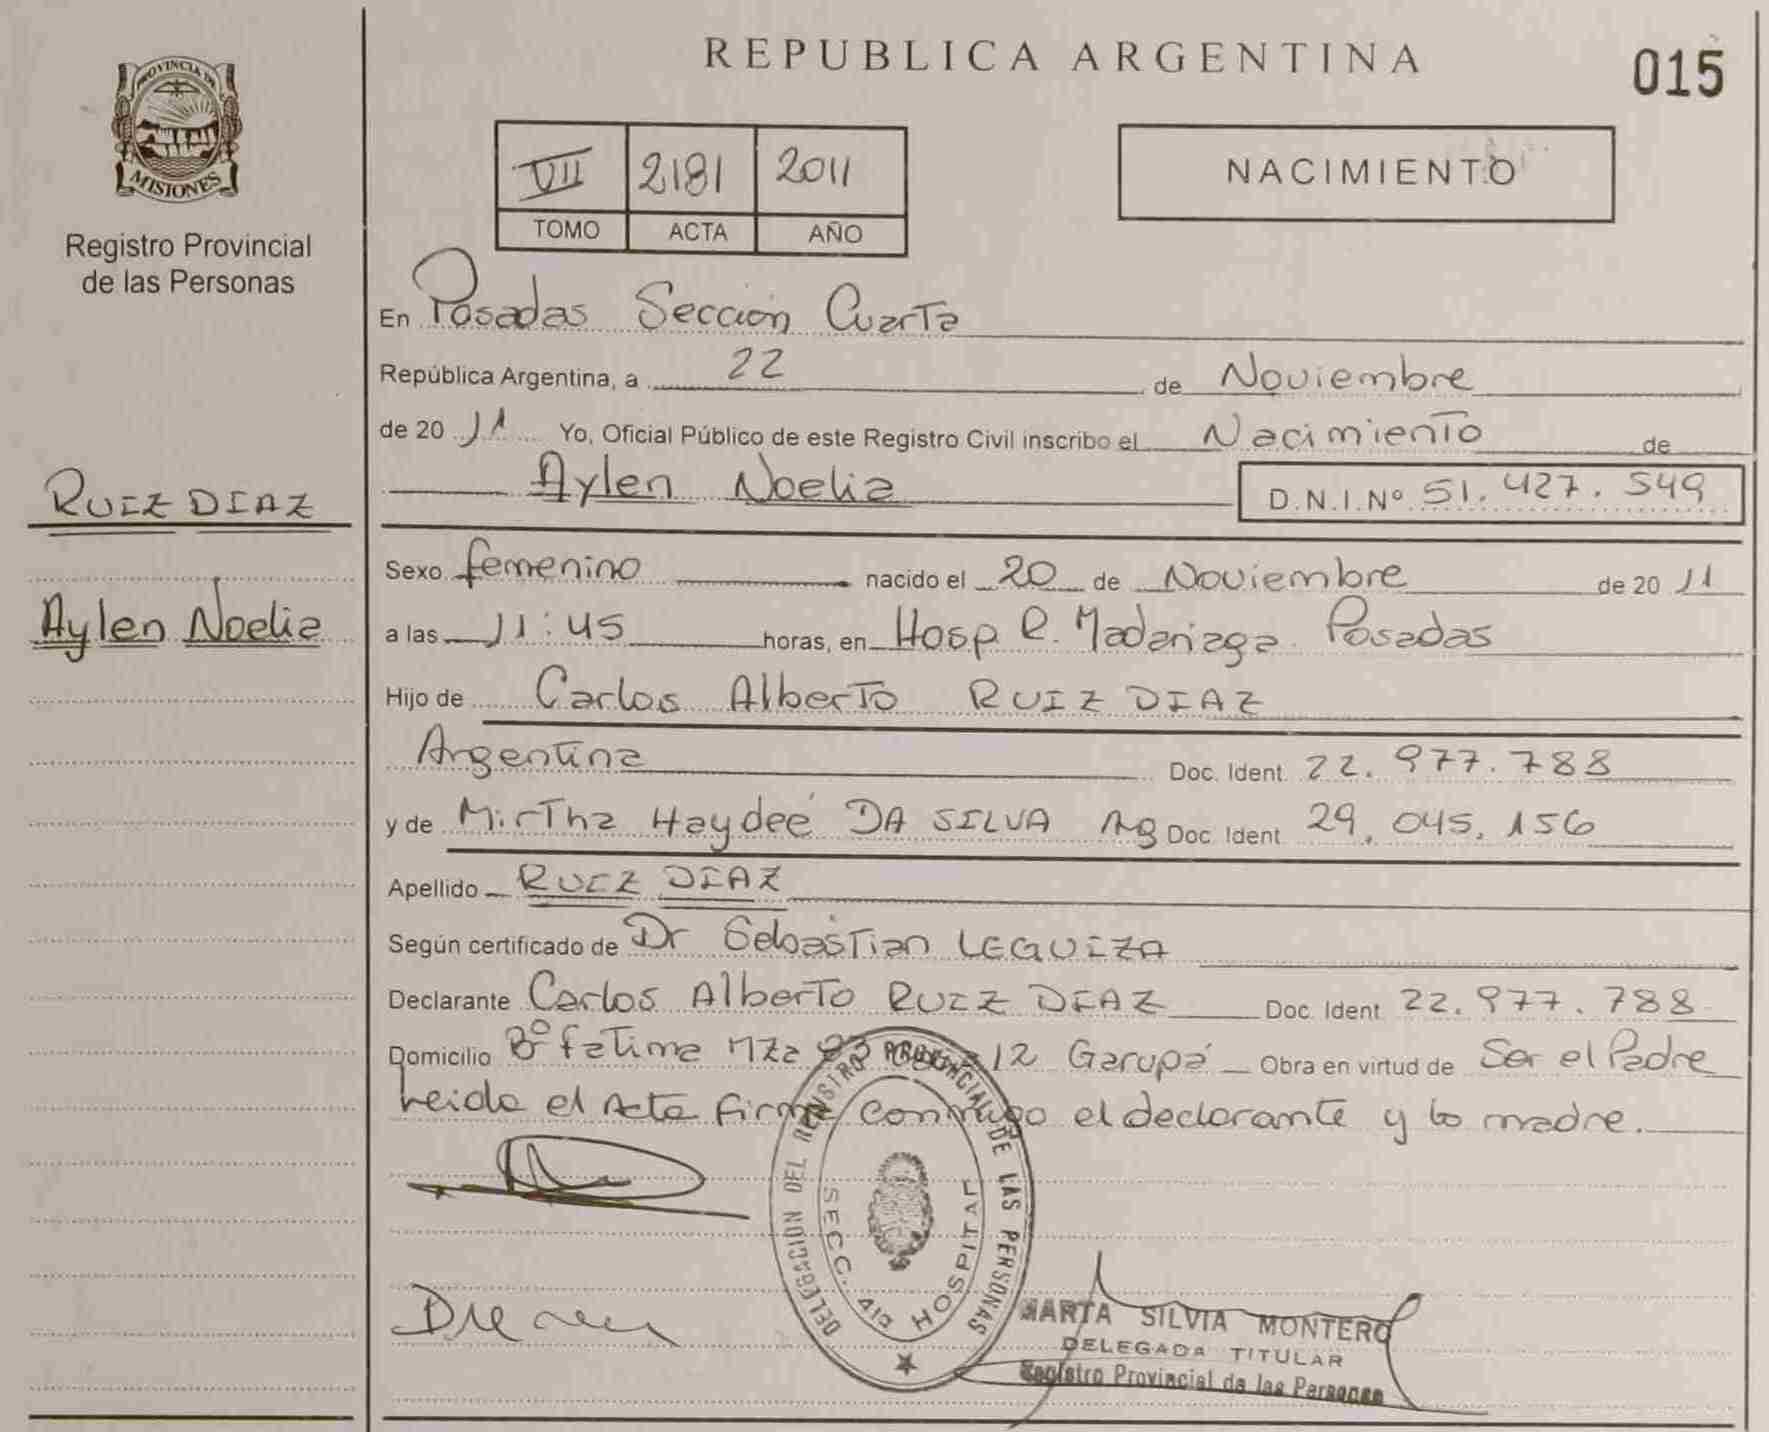 REPUBLICA ARGENTINA
015
PROVINCIA DE
MISIONES
Registro Provincial
de las Personas
VII 2181 2011
TOMO ACTA AÑO
NACIMIENTO
En Posadas Sección Cuarta
República Argentina, a 22 de Noviembre
de 20 11 Yo, Oficial Público de este Registro Civil inscribo el Nacimiento de
Aylen Noelia D.N.I.Nº 51.427.549
RUIZ DIAZ
Aylen Noelia
Sexo femenino nacido el 20 de Noviembre de 20 11
a las 11:45 horas, en Hosp. R. Madariaga Posadas
Hijo de Carlos Alberto RUIZ DIAZ
Argentina Doc. Ident 22.977.788
y de Mirtha Haydeé DA SILVA Ag Doc Ident 29.045.156
Apellido RUIZ DIAZ
Según certificado de Dr Sebastian LEGUIZA
Declarante Carlos Alberto RUIZ DIAZ Doc. Ident 22.977.788
Domicilio Bº Fatima Mza 12 Garupá Obra en virtud de Ser el Padre
Leida el Acta firma conmigo el declarante y la madre.
DELEGACION DEL REGISTRO PROVINCIAL DE LAS PERSONAS
SECC. 4ta HOSPITAL
MARTA SILVIA MONTERO
DELEGADA TITULAR
Registro Provincial de las Personas